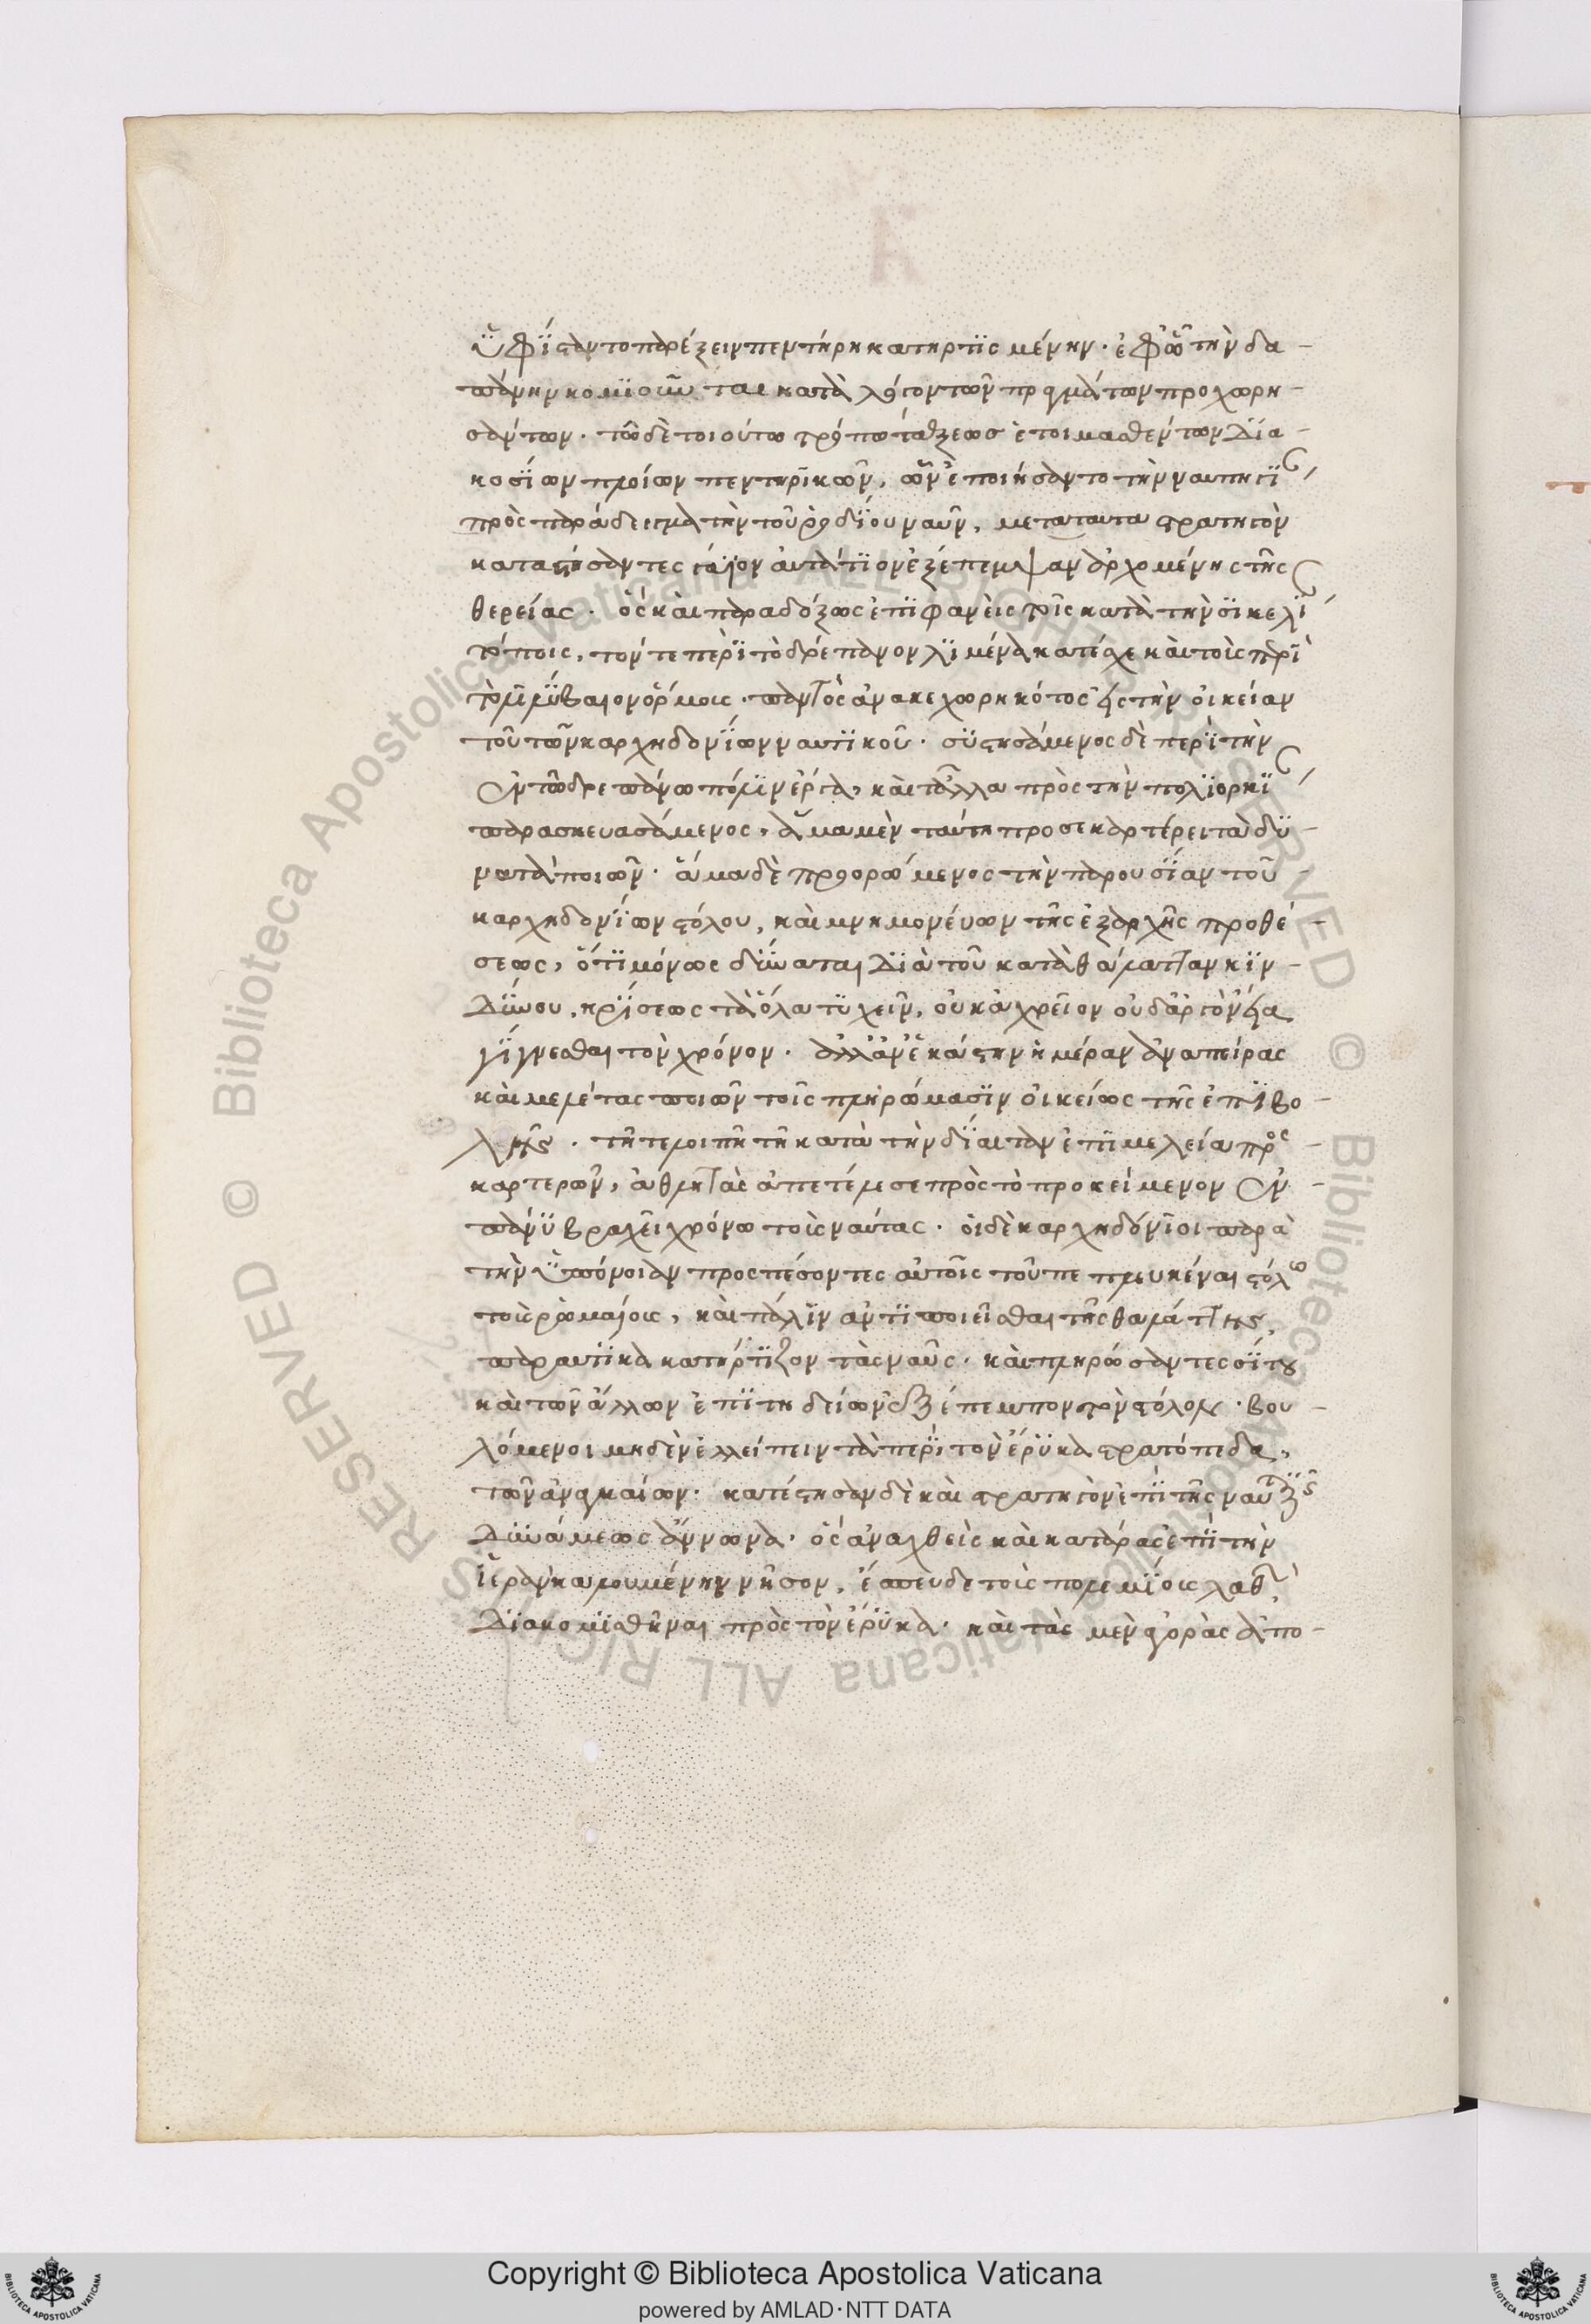 ὑφίσταντο παρέξειν πεντήρη κατηρτισμένην· ἐφ' ᾧ τὴν δα-
πάνην κομιοῦνται κατὰ λόγον τῶν πραγμάτων προχωρη-
σάντων· τῷ δὲ τοιούτῳ τρόπῳ ταχέως ἑτοιμασθέντων δια-
κοσίων πλοίων πεντηρικῶν, ὧν ἐποιήσαντο τὴν ναυπηγίαν
πρὸς παράδειγμα τὴν τοῦ ῥοδίου ναῦν, μετα ταυτα στρατηγὸν
καταστήσαντες γάϊον λυτάτιον ἐξέπεμψαν ἀρχομένης τῆς
θερείας· ὃς καὶ παραδόξως ἐπιφανεὶς τοῖς κατὰ τὴν σικελίαν
τόποις, τόν τε περὶ τὸ δρέπανον λιμένα κατέσχε καὶ τοὺς περὶ
τὸ λιλύβαιον ὅρμους· παντὸς ἀνακεχωρηκότος εἰς τὴν οἰκείαν
τοῦ τῶν καρχηδονίων ναυτικοῦ· συστησάμενος δὲ περὶ τὴν
ἐν τῷ δρεπάνῳ πόλιν ἔργα, καὶ τἄλλα πρὸς τὴν πολιορκίαν
παρασκευασάμενος, ἅμα μὲν ταύτῃ προσεκαρτέρει τὰ δυ-
νατὰ ποιῶν· ἅμα δὲ προορώμενος τὴν παρουσίαν τοῦ
καρχηδονίων στόλου, καὶ μνημονεύων τῆς ἐξ ἀρχῆς προθέ-
σεως, ὅτι μόνως δύναται διὰ τοῦ κατὰ θάλατταν κιν-
δύνου, κρίσεως τὰ ὅλα τυχεῖν, οὐκ ἀχρεῖον οὐδ' ἀργὸν εἴα
γίγνεσθαι τὸν χρόνον· ἀλλ' ἀν' ἑκάστην ἡμέραν ἀναπείρας
καὶ μελέτας ποιῶν τοῖς πληρώμασιν οἰκείως τῆς ἐπιβο-
λῆς· τῇ τε λοιπῇ τῇ κατὰ τὴν δίαιταν ἐπιμελείᾳ προσ-
καρτερῶν, ἀθλητὰς ἀπετέλεσε πρὸς τὸ προκείμενον ἐν
πάνυ βραχεῖ χρόνῳ τοὺς ναύτας· οἱ δὲ καρχηδόνιοι παρὰ
τὴν ὑπόνοιαν προσπέσοντες αὐτοῖς τοῦ πεπλευκέναι στόλῳ
τοὺς ῥωμαίους, καὶ πάλιν ἀντιποιεῖσθαι τῆς θαλάττης,
παραυτίκα κατήρτιζον τὰς ναῦς· καὶ πληρώσαντες σίτου
καὶ τῶν ἄλλων ἐπιτηδείων ἐξέπεμπον τὸν στόλον· βου-
λόμενοι μηδὲν ἐλλείπειν τὰ περὶ τὸν ἔρυκα στρατόπεδα,
τῶν ἀναγκαίων· κατέστησαν δὲ καὶ στρατηγὸν ἐπὶ τῆς ναυτικῆς
δυνάμεως ἄννωνα· ὃς ἀναχθεὶς καὶ κατάρας ἐπὶ τὴν
ἱερὰν καλουμένην νῆσον, ἔσπευδε τοὺς πολεμίους λαθὼν
διακομισθῆναι πρὸς τὸν ἔρυκα· καὶ τὰς μὲν ἀγορὰς ἀπο-
Copyright © Biblioteca Apostolica Vaticana
powered by AMLAD·NTT DATA